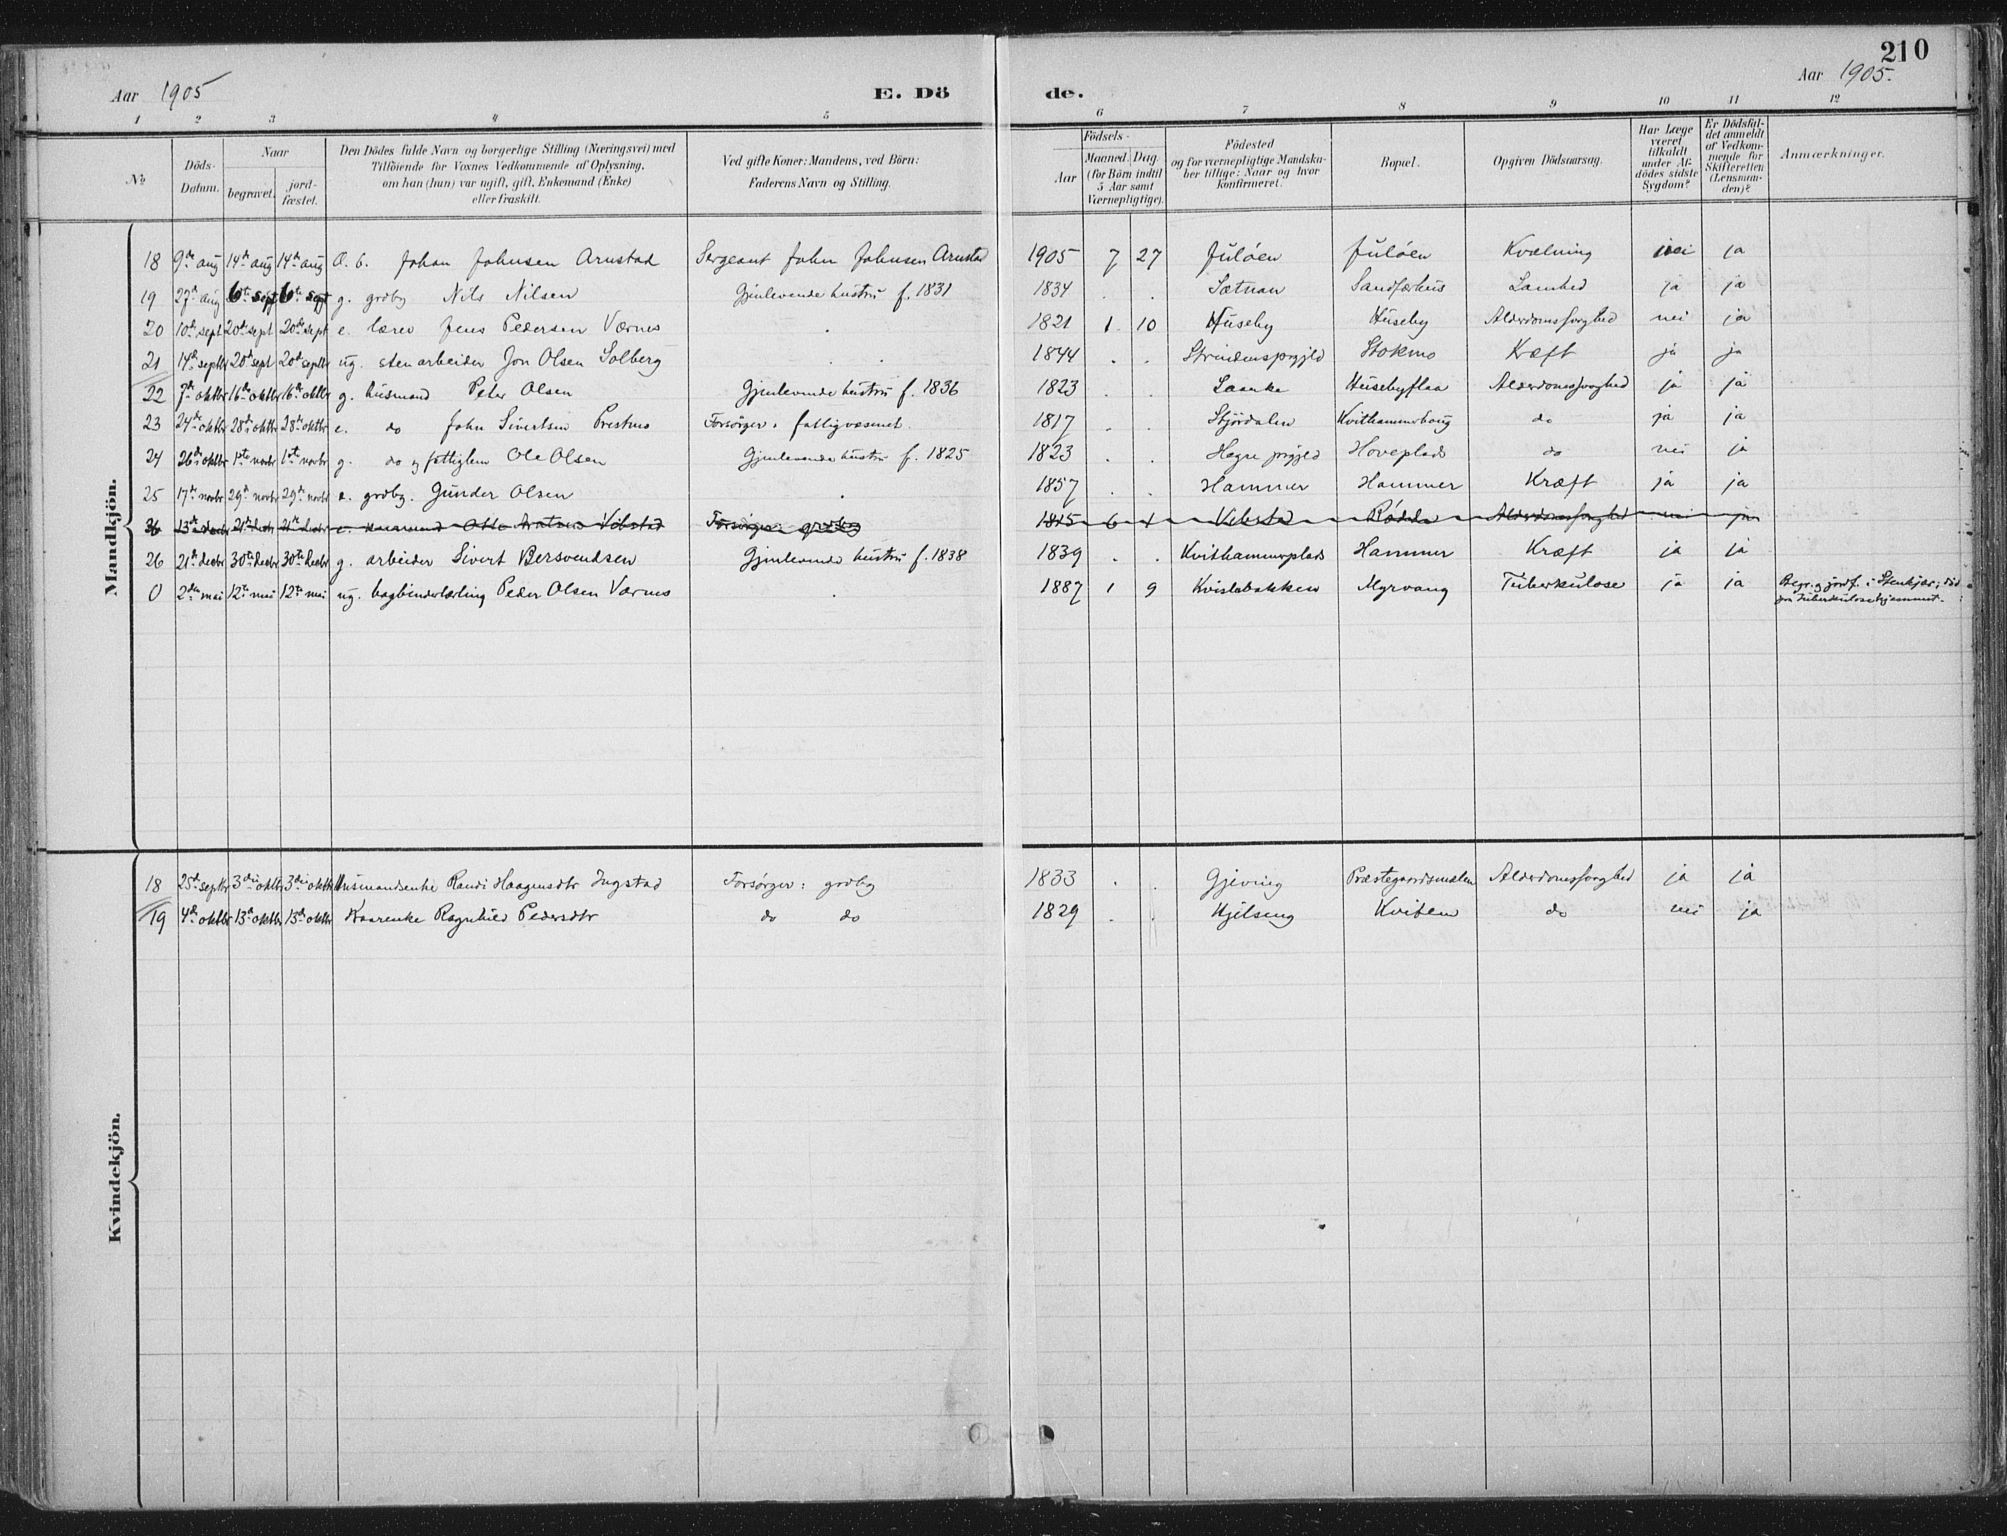 210
Aar 1905 E. Dö de. Aar 1905.
1 2 3 4 5 6 7 8 9 10 11 12
No
Döds-Datum.
Naar
begravet.
jord-fæstet.
Den Dödes fulde Navn og borgerlige Stilling (Næringsvei) med
Tilföiende for Voxnes Vedkommende af Oplysning,
om han (hun) var ugift, gift, Enkemand (Enke)
eller fraskilt.
Ved gifte Koner: Mandens, ved Börn:
Faderens Navn og Stilling.
Födsels-
Aar
Maaned. Dag.
(for Börn indtil
5 Aar samt
Værnepligtige).
Födested
og for værnepligtige Mandska-
ber tillige: Naar og hvor
konfirmeret.
Bopæl.
Opgiven Dödsaarsag.
Har Læge
været
tilkaldt
under Af-
dödes sidste
Sygdom?
Er Dödsfal-
det anmeldt
af Vedkom-
mende for
Skifteretten
(Lensman-
den)?
Anmærkninger.
Mandkjön.
18 9de aug 14de aug 14de aug O. b. Johan Johnsen Arnstad Sergeant John Johnsen Arnstad 1905 7 27 Juløen Juløen Kvælning nei ja
19 27de aug 6te sept 6te sept g. grdbr Nils Nilsen Gjenlevende hustru f. 1831 1834 . . Sætnan Sandfærhus Lamhed ja ja
20 10de sept 20de sept 20de sept e. lærer Jens Pedersen Værnes . 1821 1 10 Huseby Huseby Alderdomssvaghed nei ja
21 14de septbr 20de sept 20de septbr ug. stenarbeider Jon Olsen Solberg . . 1844 . . Strindensprgjld Stokmo Kræft ja ja
22 7de oktbr 16de oktbr 16de oktbr g. husmand Peter Olsen Gjenlevende hustru f. 1836 1823 . . Laanke Husebyflaa Alderdomssvaghed ja ja
23 24de oktbr 28de oktbr 28de oktbr e. do John Sivertsen Prestmo Forsörger: fattigvæsenet. 1817 . . Stjørdalen Kvithammerhaug do ja ja
24 26de oktbr 1ste novbr 1ste novbr g. do og fattiglem Ole Olsen Gjenlevende hustru f. 1825 1823 . . Hegre prgjeld Hoveplads do nei ja
25 17de novbr 29de novbr 29de novbr e. grdbr. Gunder Olsen . 1857 . . Hammer Hammer Kræft ja ja
26 13de decbr 21de decbr 21de decbr e. Otto Vibstad Forsørger: grdbr 1815 6 4 Vibstad Rødde Alderdomssvaghed nei ja
26 21de decbr 30te decbr 30te decbr g. arbeider Sivert Bersvendsen Gjenlevende hustru f. 1838 1839 . . Kvithammerplads Hammer Kræft ja ja
0 2den mai 12te mai 12te mai ug. bogbinderlærling Peder Olsen Værnes . 1887 1 9 Kvislabakken Myrvang Tuberkulose ja ja Begr. og jordf. i Stenkjær; död
paa Tuberkulosehjemmet.
Kvindekjön.
18 25de septbr 3die oktbr 3die oktbr Husmandsenke Randi Haagensdtr Ingstad Forsørger: grdbr 1833 . . Gjeving Præstegaardsmalen Alderdomssvaghed ja ja
19 4de oktbr 13de oktbr 13de oktbr Kaarenke Ragnhild Pedersdtr do do 1829 . . Hjelseng Kviten do nei ja